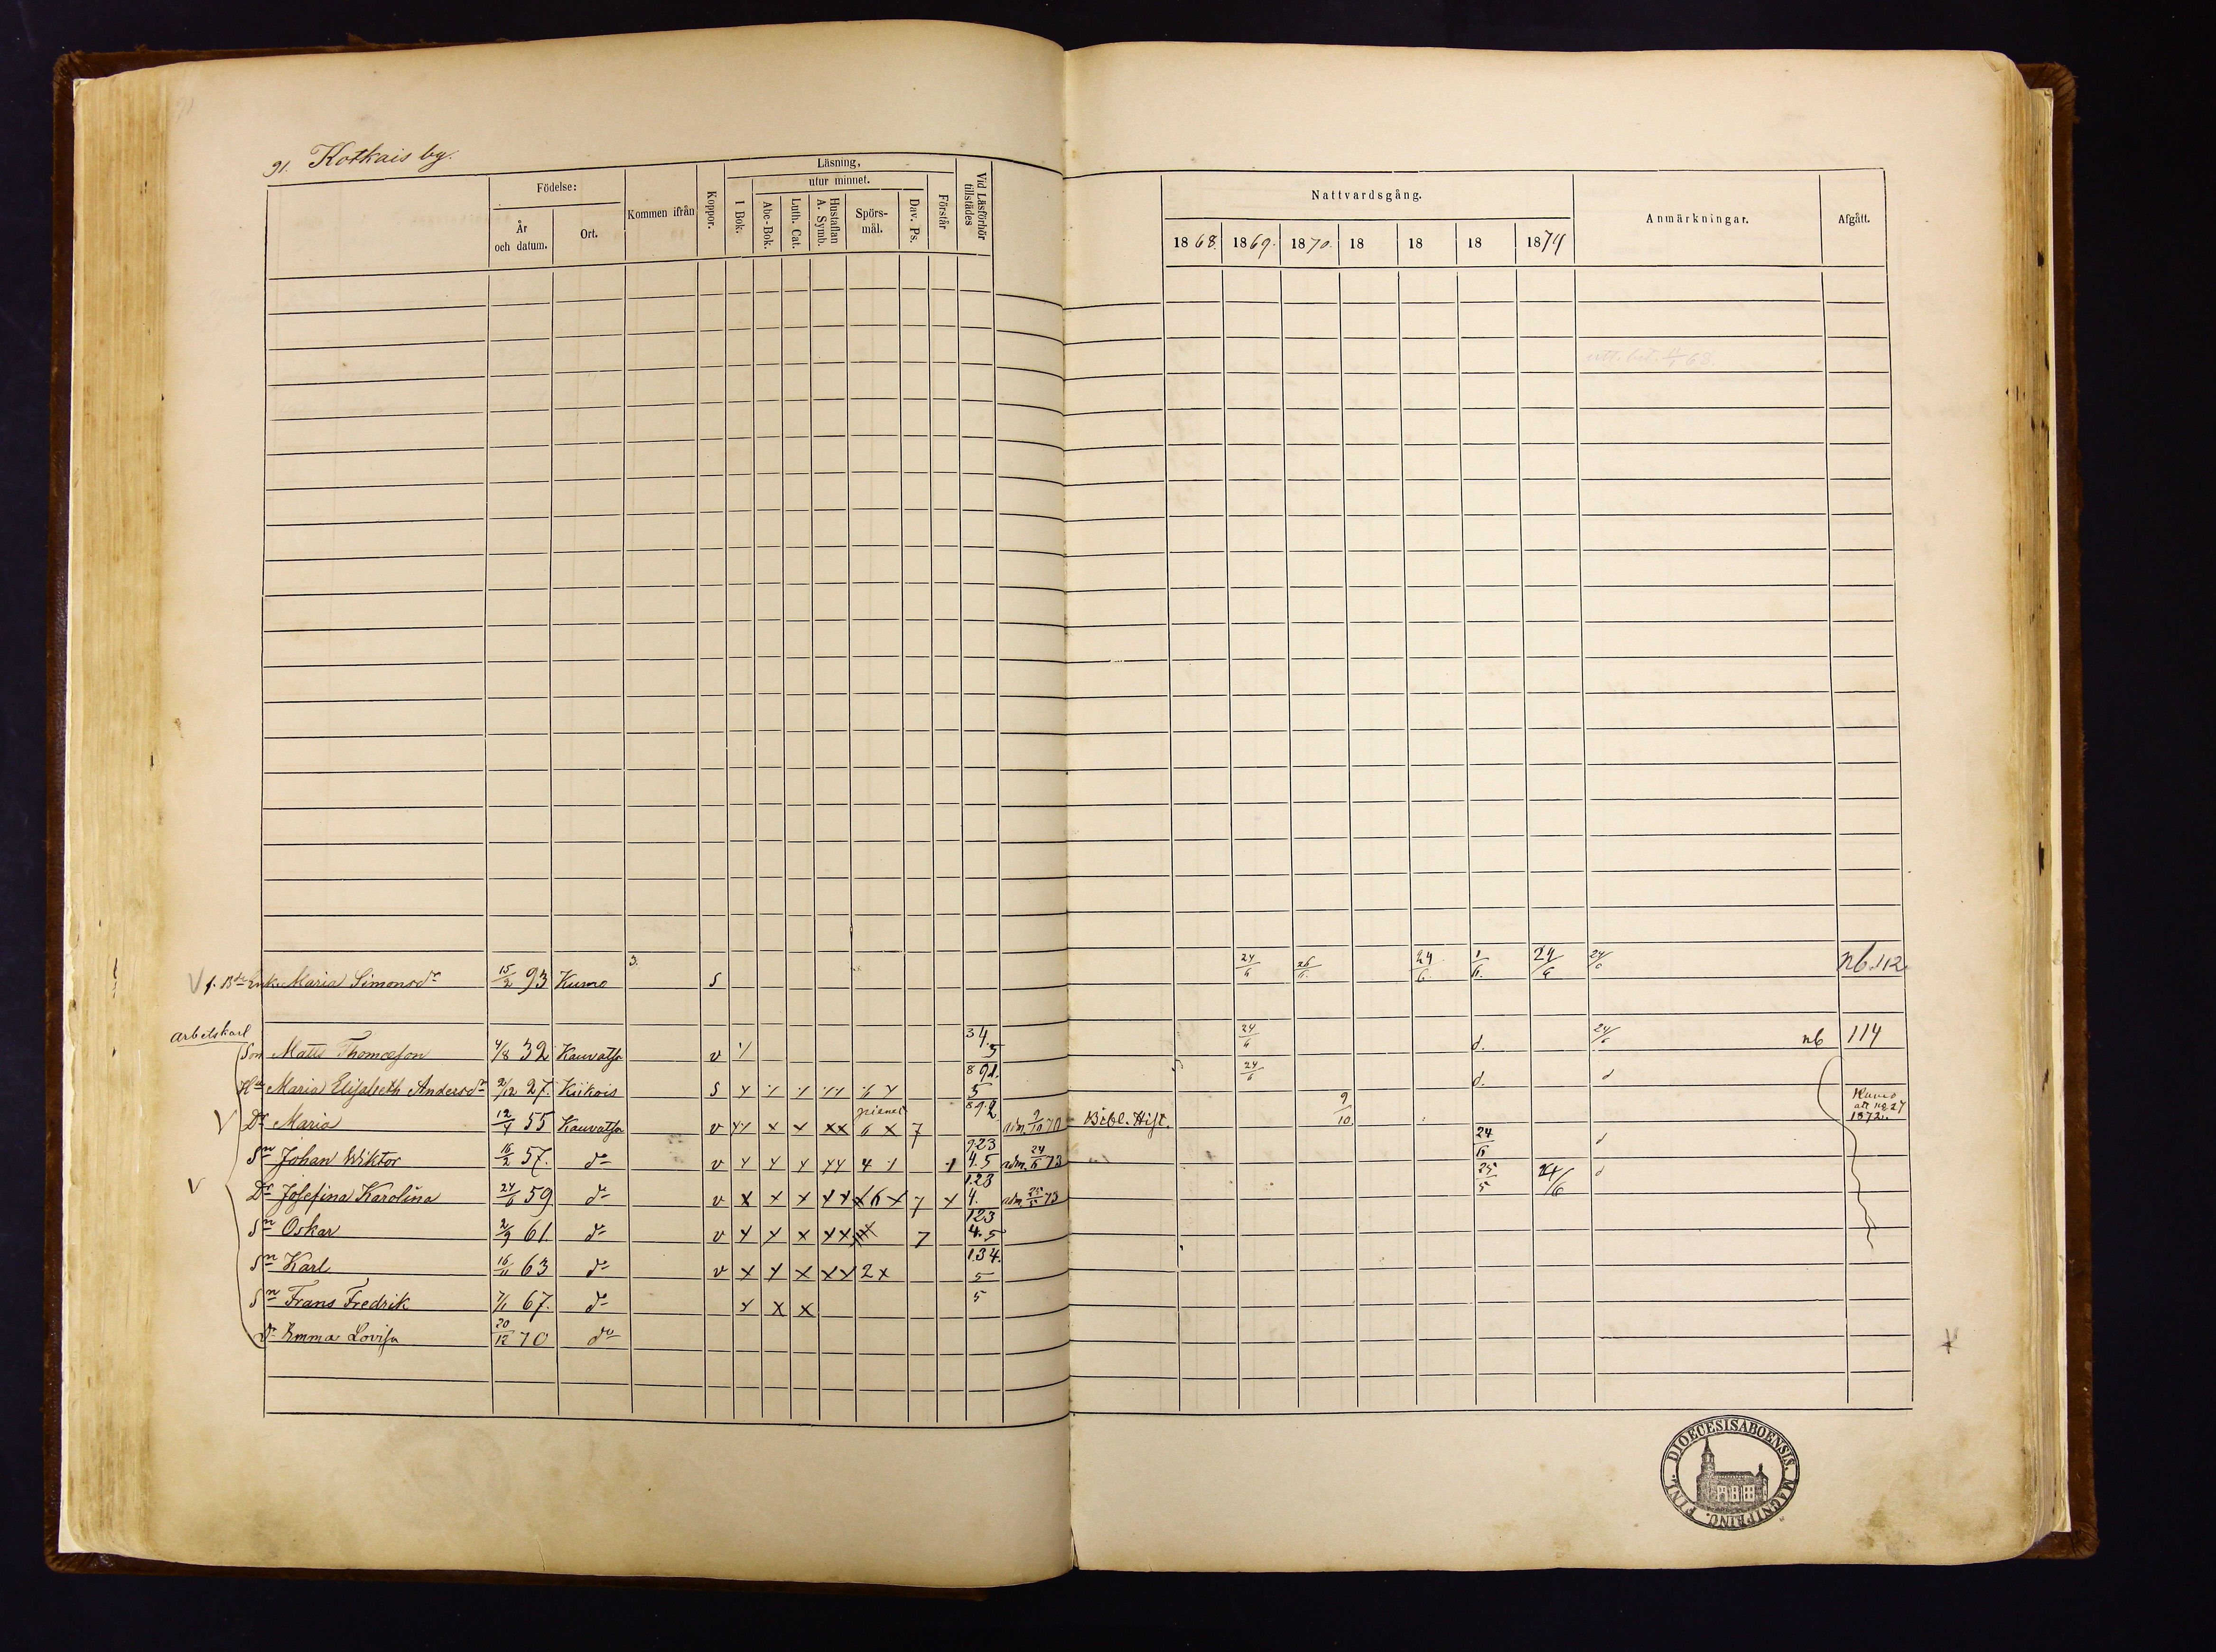 91. Kotkais by.
Födelse: Kommen ifrån Koppor. Läsning, Förstår Vid Läsförhör tillstädes
År och datum. Ort. I Bok. utur minnet.
Abc-Bok. Luth. Cat. Hustaflan A. Symb. Spörs-mål. Dav. Ps.
Nattvardsgång. Anmärkningar. Afgått.
1868. 1869. 1870. 18 18 18 1874
att. bet. 68
3.
1. Bde Enk. Maria Simonsdr 15/2 93 Kumo s 24/6 26/6 24/6 1/6 24/6 24/6 nb.112.
Arbetskarl
Son Matts Thomasson 4/8 32 Kauvatsa v 34.5 24/6 d. 24/6 nb 114
Hu Maria Elisabeth Andersdr 2/12 27. Kiikois s 891. 5 24/6 d. d
Dr Maria 12/4 55 Kauvatsa v xx x x xx 6 x 7 892 adm. 9/10 70 Bibl. Hist. 9/10. Kumo att no 27 1872.
Sn Johan Wiktor 16/2 57. do v 4 1 1 923 4.5 adm. 24/6 73 24/6 d
Dr Josefina Karolina 24/6 59 do v x x x xx x6x 7 x 123 4. adm 25/5 73 25/5 24/6 d
Sn Oskar 2/9 61 do v x x x xx 7 123 4.5
Sn Karl 16/11 63 do v x x x xx 2x 134. 5
Sn Frans Fredrik 7/1 67. do x x x 5
Dr Emma Lovisa 20/12 70 do
FINL. DIOECESIS ABOENSIS. MAGNI PRINC.